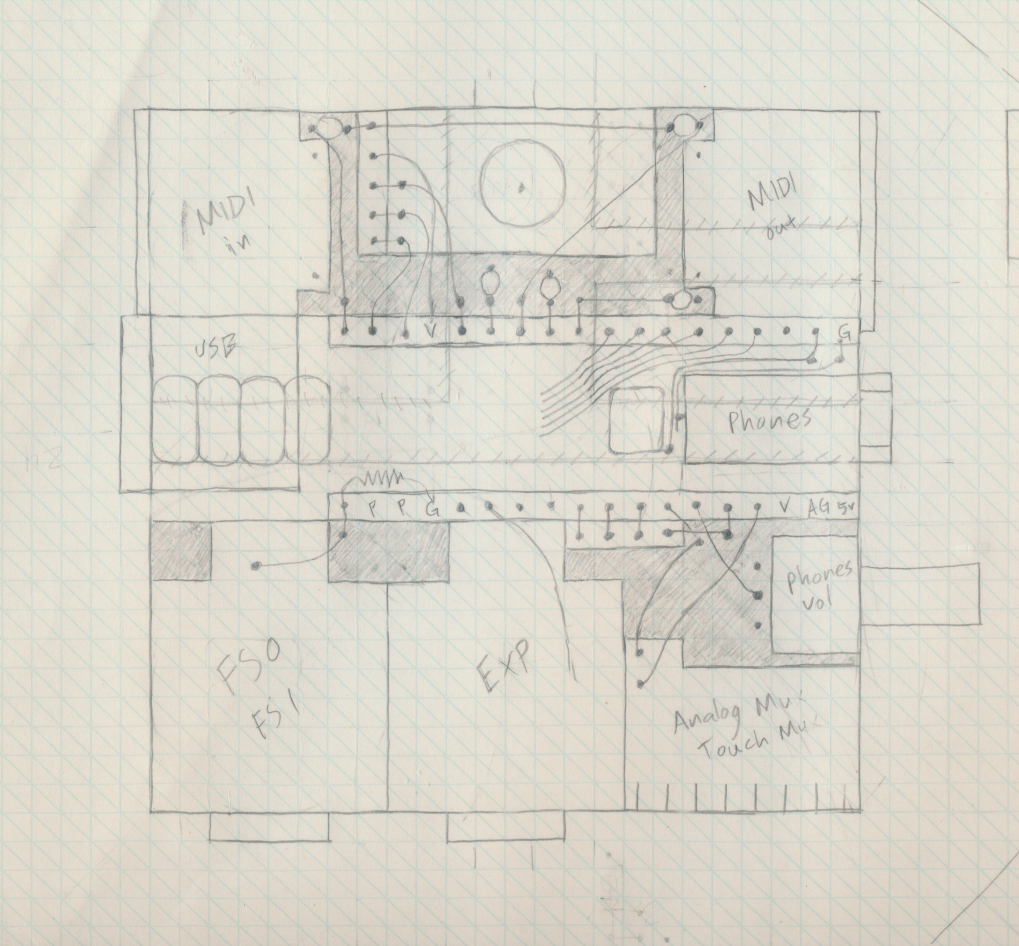 MIDI
in
MIDI
out
USB
V
G
Phones
P P G
V AG 5v
phones
vol
FS0
FS1
EXP
Analog Mux
Touch Mux